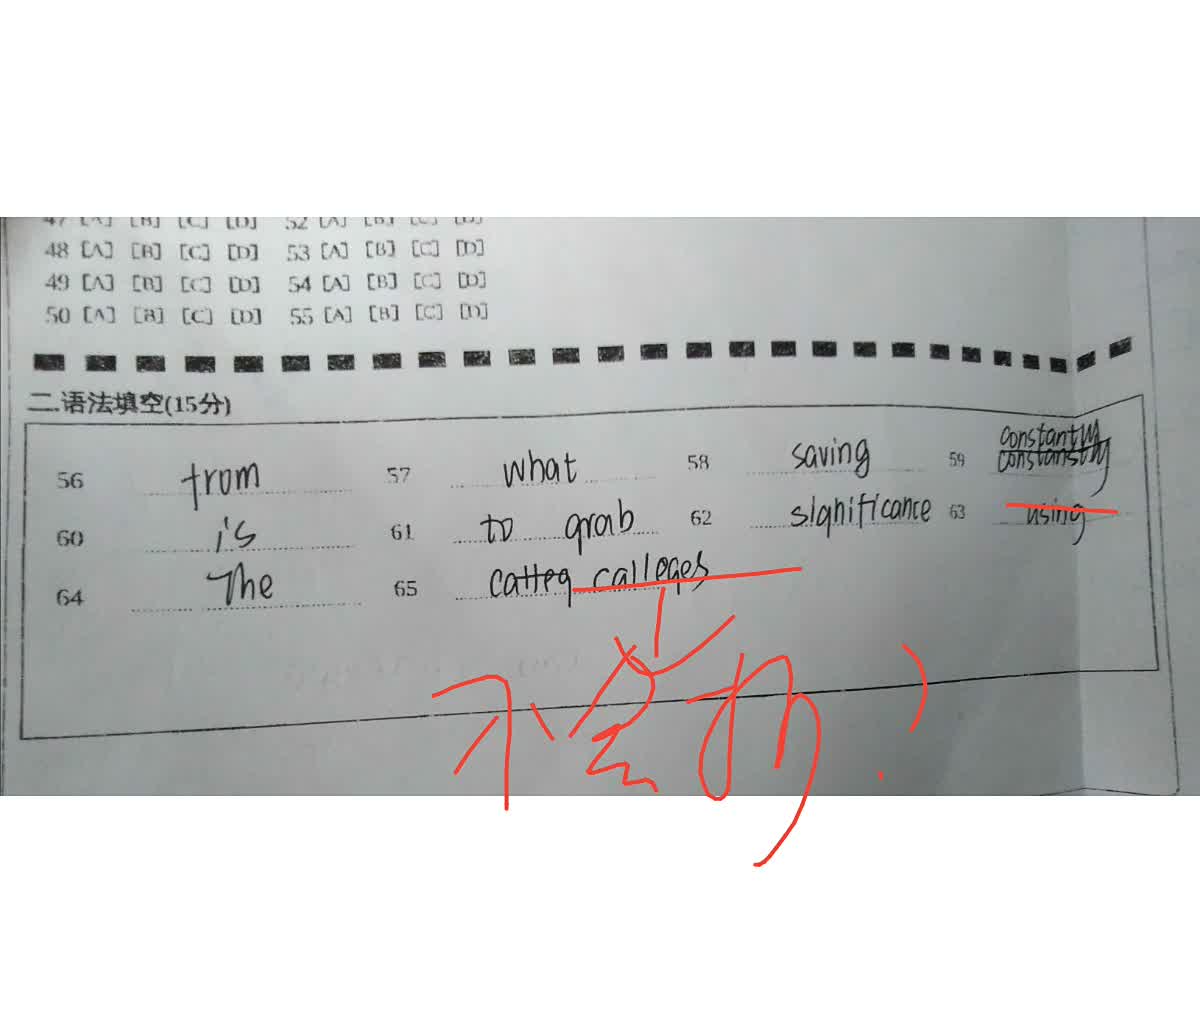 47 [A] [B] [C] [D] 52 [A] [B] [C] [D]
48 [A] [B] [C] [D] 53 [A] [B] [C] [D]
49 [A] [B] [C] [D] 54 [A] [B] [C] [D]
50 [A] [B] [C] [D] 55 [A] [B] [C] [D]
二.语法填空(15分)
constantly
56 from 57 what 58 saving 59 constanstly
60 is 61 to grab 62 significance 63 using
64 The 65 catteg calleges
不会拐